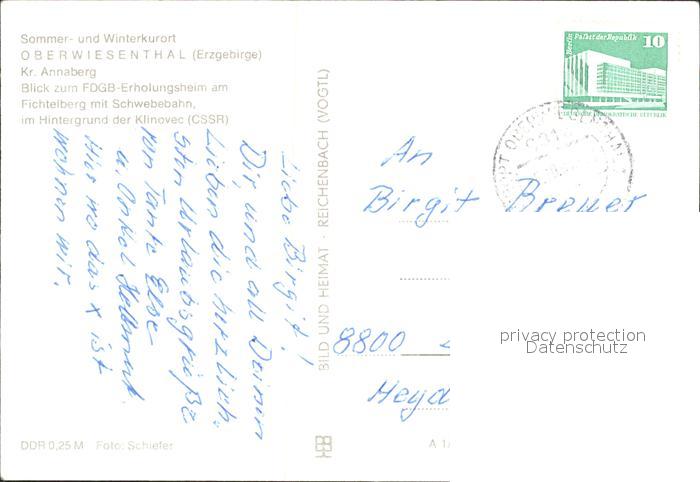 Sommer- und Winterkurort
OBERWIESENTHAL (Erzgebirge)
Kr. Annaberg
Blick zum FDGB-Erholungsheim am
Fichtelberg mit Schwebebahn,
im Hintergrund der Klinovec (CSSR)
Liebe Birgit!
Dir und all Deinen
Lieben die herzlich-
sten Urlaubsgrüße
von Tante Else
u. Onkel Hellmut.
Hier wo das x ist
wohnen wir.
DDR 0,25 M Foto: Schiefer
BILD UND HEIMAT REICHENBACH (VOGTL)
Berlin Palast der Republik
10
DEUTSCHE DEMOKRATISCHE REPUBLIK
An
Birgit Breuer
8800
Heyd
privacy protection
Datenschutz
A 1/